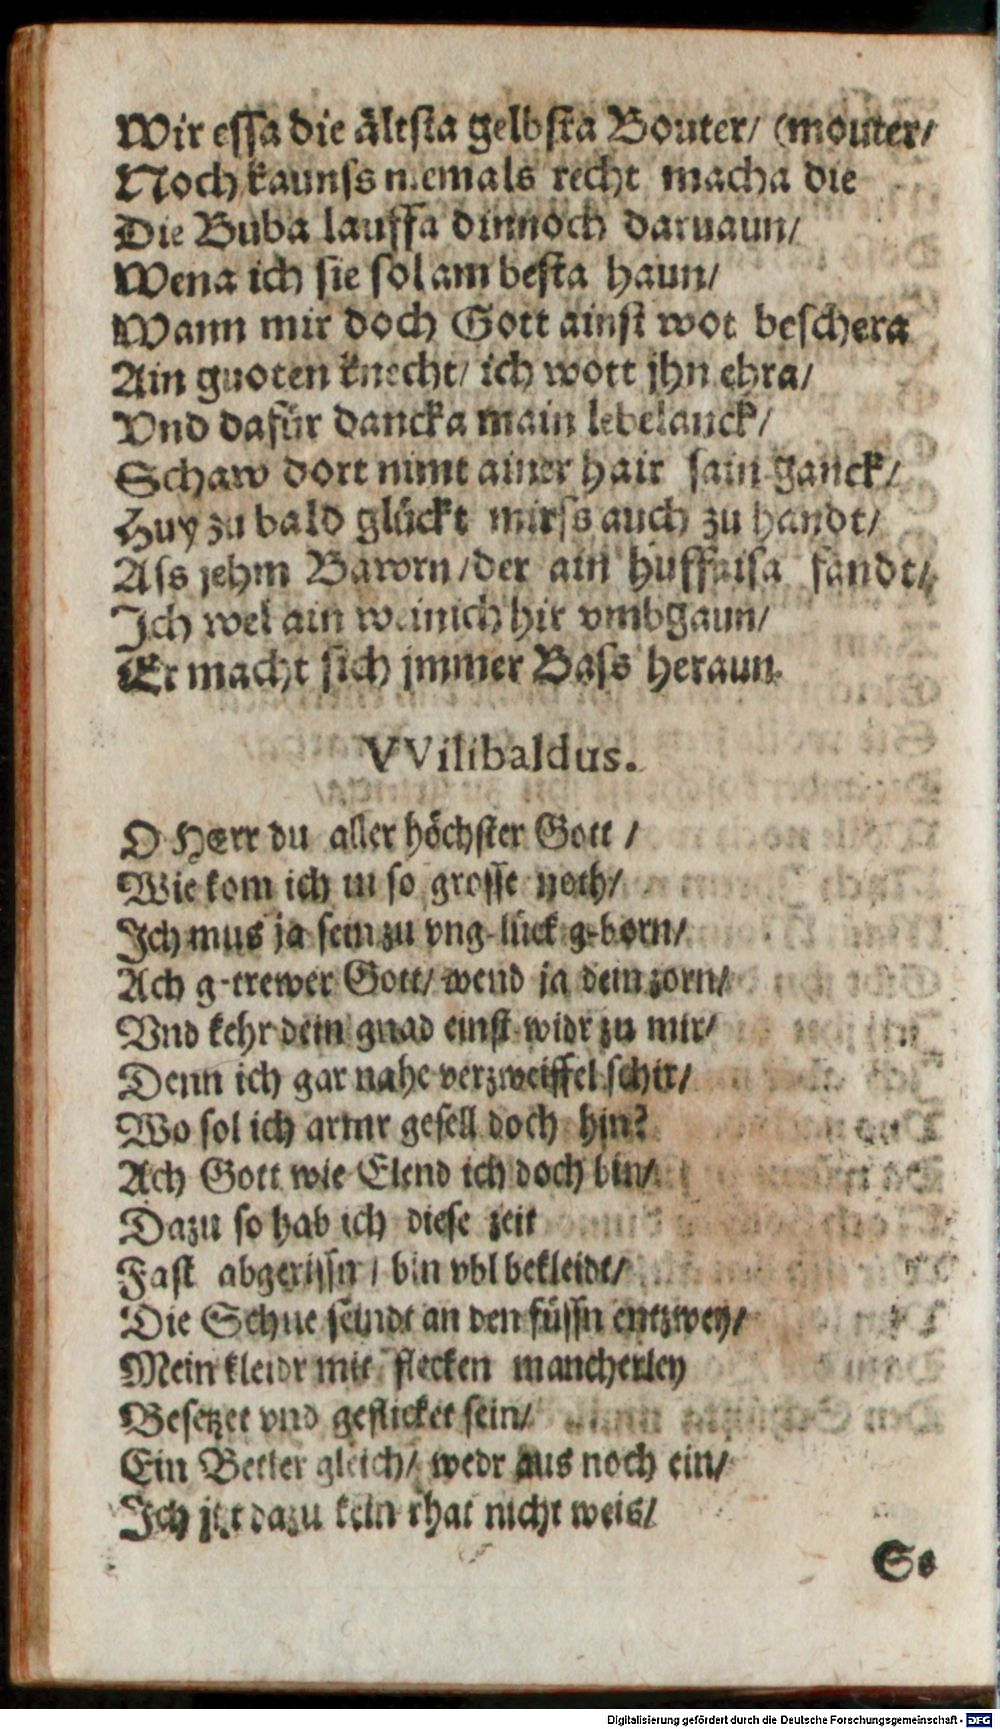 Wir essa die ältsta gelbsta Bouter/ (mouter/
Noch kaunss niemals recht macha die
Die Buba lauffa dinnoch daruaun/
Wena ich sie sol am besta haun/
Wann mir doch Gott ainst wot beschera
Ain guoten knecht/ ich wott jhn ehra/
Vnd dafür dancka main lebelanck/
Schaw dort nimt ainer hair sain ganck/
Huy zu bald glückt mirss auch zu handt/
Ass jehm Bawrn/der ain huffaisa fandt/
Ich wel ain wainich hir vmbgaun/
Er macht sich jmmer Bass heraun.
VVilibaldus.
O HErr du aller höchster Gott /
Wie kom ich in so grosse noth/
Ich mus ja sein zu vnglück geborn/
Ach getrewer Gott/ wend ja dein zorn/
Vnd kehr dein gnad einst widr zu mir/
Denn ich gar nahe verzweiffel schir/
Wo sol ich armr gesell doch hin?
Ach Gott wie Elend ich doch bin/
Dazu so hab ich diese zeit
Fast abgerissn / bin vbl bekleidt/
Die Schue seindt an den füssn entzwey/
Mein kleidr mit flecken mancherley
Besetzet vnd geflicket sein/
Ein Betler gleich/ wedr aus noch ein/
Ich jtzt dazu kein rhat nicht weis/
So
Digitalisierung gefördert durch die Deutsche Forschungsgemeinschaft - DFG